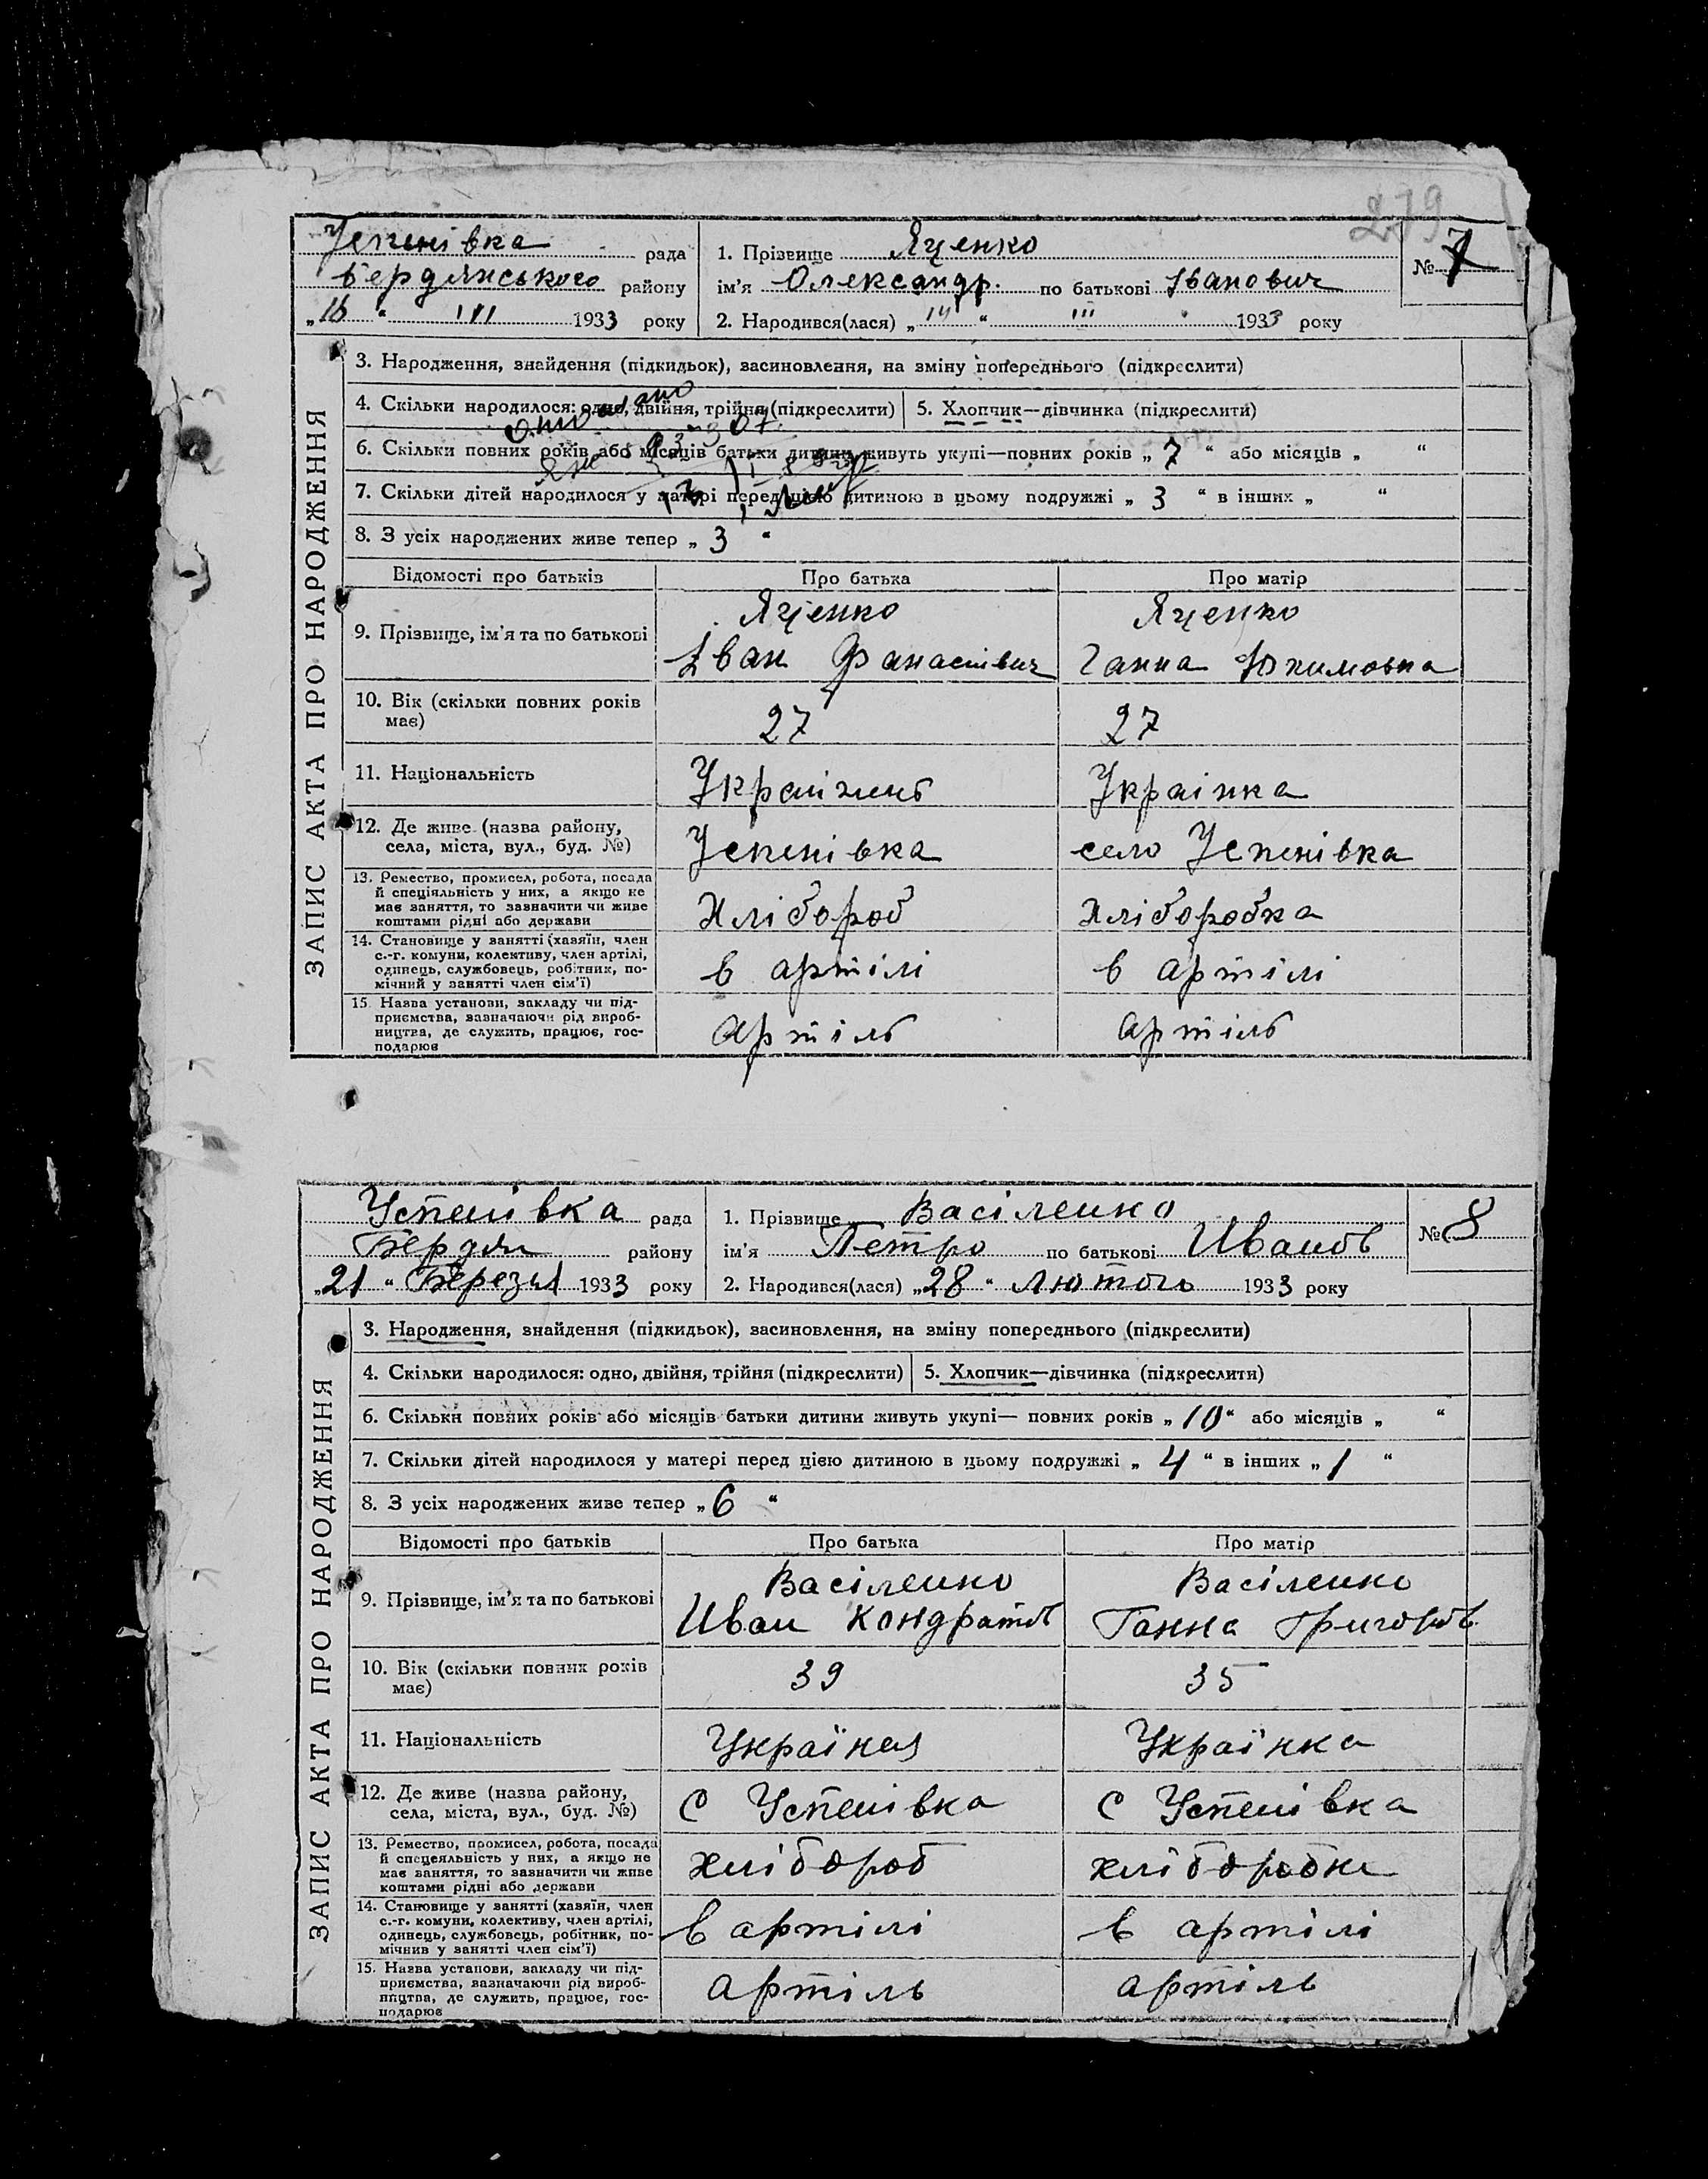 279
Успенівка рада
Бердянського району
„16“ III 1933 року
1. Прізвище Яценко
ім’я Олександр. по батькові Іванович
2. Народився(лася) „14“ III 1933 року
№ 7
ЗАПИС АКТА ПРО НАРОДЖЕННЯ
3. Народження, знайдення (підкидьок), засиновлення, на зміну попереднього (підкреслити)
4. Скільки народилося: одно, двійня, трійня (підкреслити) 5. Хлопчик—дівчинка (підкреслити)
6. Скільки повних років або місяців батьки дитини живуть укупі—повних років „7“ або місяців „ “
7. Скільки дітей народилося у матері перед цією дитиною в цьому подружжі „3“ в інших „ “
8. З усіх народжених живе тепер „3“
Відомості про батьків Про батька Про матір
9. Прізвище, ім’я та по батькові
Яценко Яценко
Іван Фанасівич Ганна Юхимовна
10. Вік (скільки повних років
має)
27 27
11. Національність Украінець Украінка
12. Де живе (назва району,
села, міста, вул., буд. №)
Успенівка село Успенівка
13. Ремество, промисел, робота, посада
й спеціяльність у них, а якщо не
має заняття, то зазначити чи живе
коштами рідні або держави
Хлібороб Хліборобка
14. Становище у занятті (хазяїн, член
с.-г. комуни, колективу, член артілі,
одинець, службовець, робітник, по-
мічний у занятті член сім’ї)
в артілі в артілі
15. Назва установи, закладу чи під-
приємства, зазначаючи рід вироб-
ництва, де служить, працює, гос-
подарює
артіль артіль
Успенівка рада
Бердян району
„21“ Березня 1933 року
1. Прізвище Василенко
ім’я Петро по батькові Иванов
2. Народився(лася) „28“ Лютого 1933 року
№ 8
ЗАПИС АКТА ПРО НАРОДЖЕННЯ
3. Народження, знайдення (підкидьок), засиновлення, на зміну попереднього (підкреслити)
4. Скільки народилося: одно, двійня, трійня (підкреслити) 5. Хлопчик—дівчинка (підкреслити)
6. Скільки повних років або місяців батьки дитини живуть укупі— повних років „10“ або місяців „ “
7. Скільки дітей народилося у матері перед цією дитиною в цьому подружжі „4“ в інших „1“
8. З усіх народжених живе тепер „6“
Відомості про батьків Про батька Про матір
9. Прізвище, ім’я та по батькові
Васіленко Васіленко
Иван Кондратов Ганна Григоров
10. Вік (скільки повних років
має)
39 35
11. Національність Українец Українка
12. Де живе (назва району,
села, міста, вул., буд. №)
С Успенівка С Успенівка
13. Ремество, промисел, робота, посада
й спецеяльність у них, а якщо не
має заняття, то зазначити чи живе
коштами рідні або держави
хлібороб хліборобка
14. Становище у занятті (хазяїн, член
с.-г. комуни, колективу, член артілі,
одинець, службовець, робітник, по-
мічнив у занятті член сім’ї)
в артілі в артілі
15. Назва установи, закладу чи під-
приємства, зазначаючи рід вироб-
ництва, де служить, працює, гос-
подарює
артіль артіль